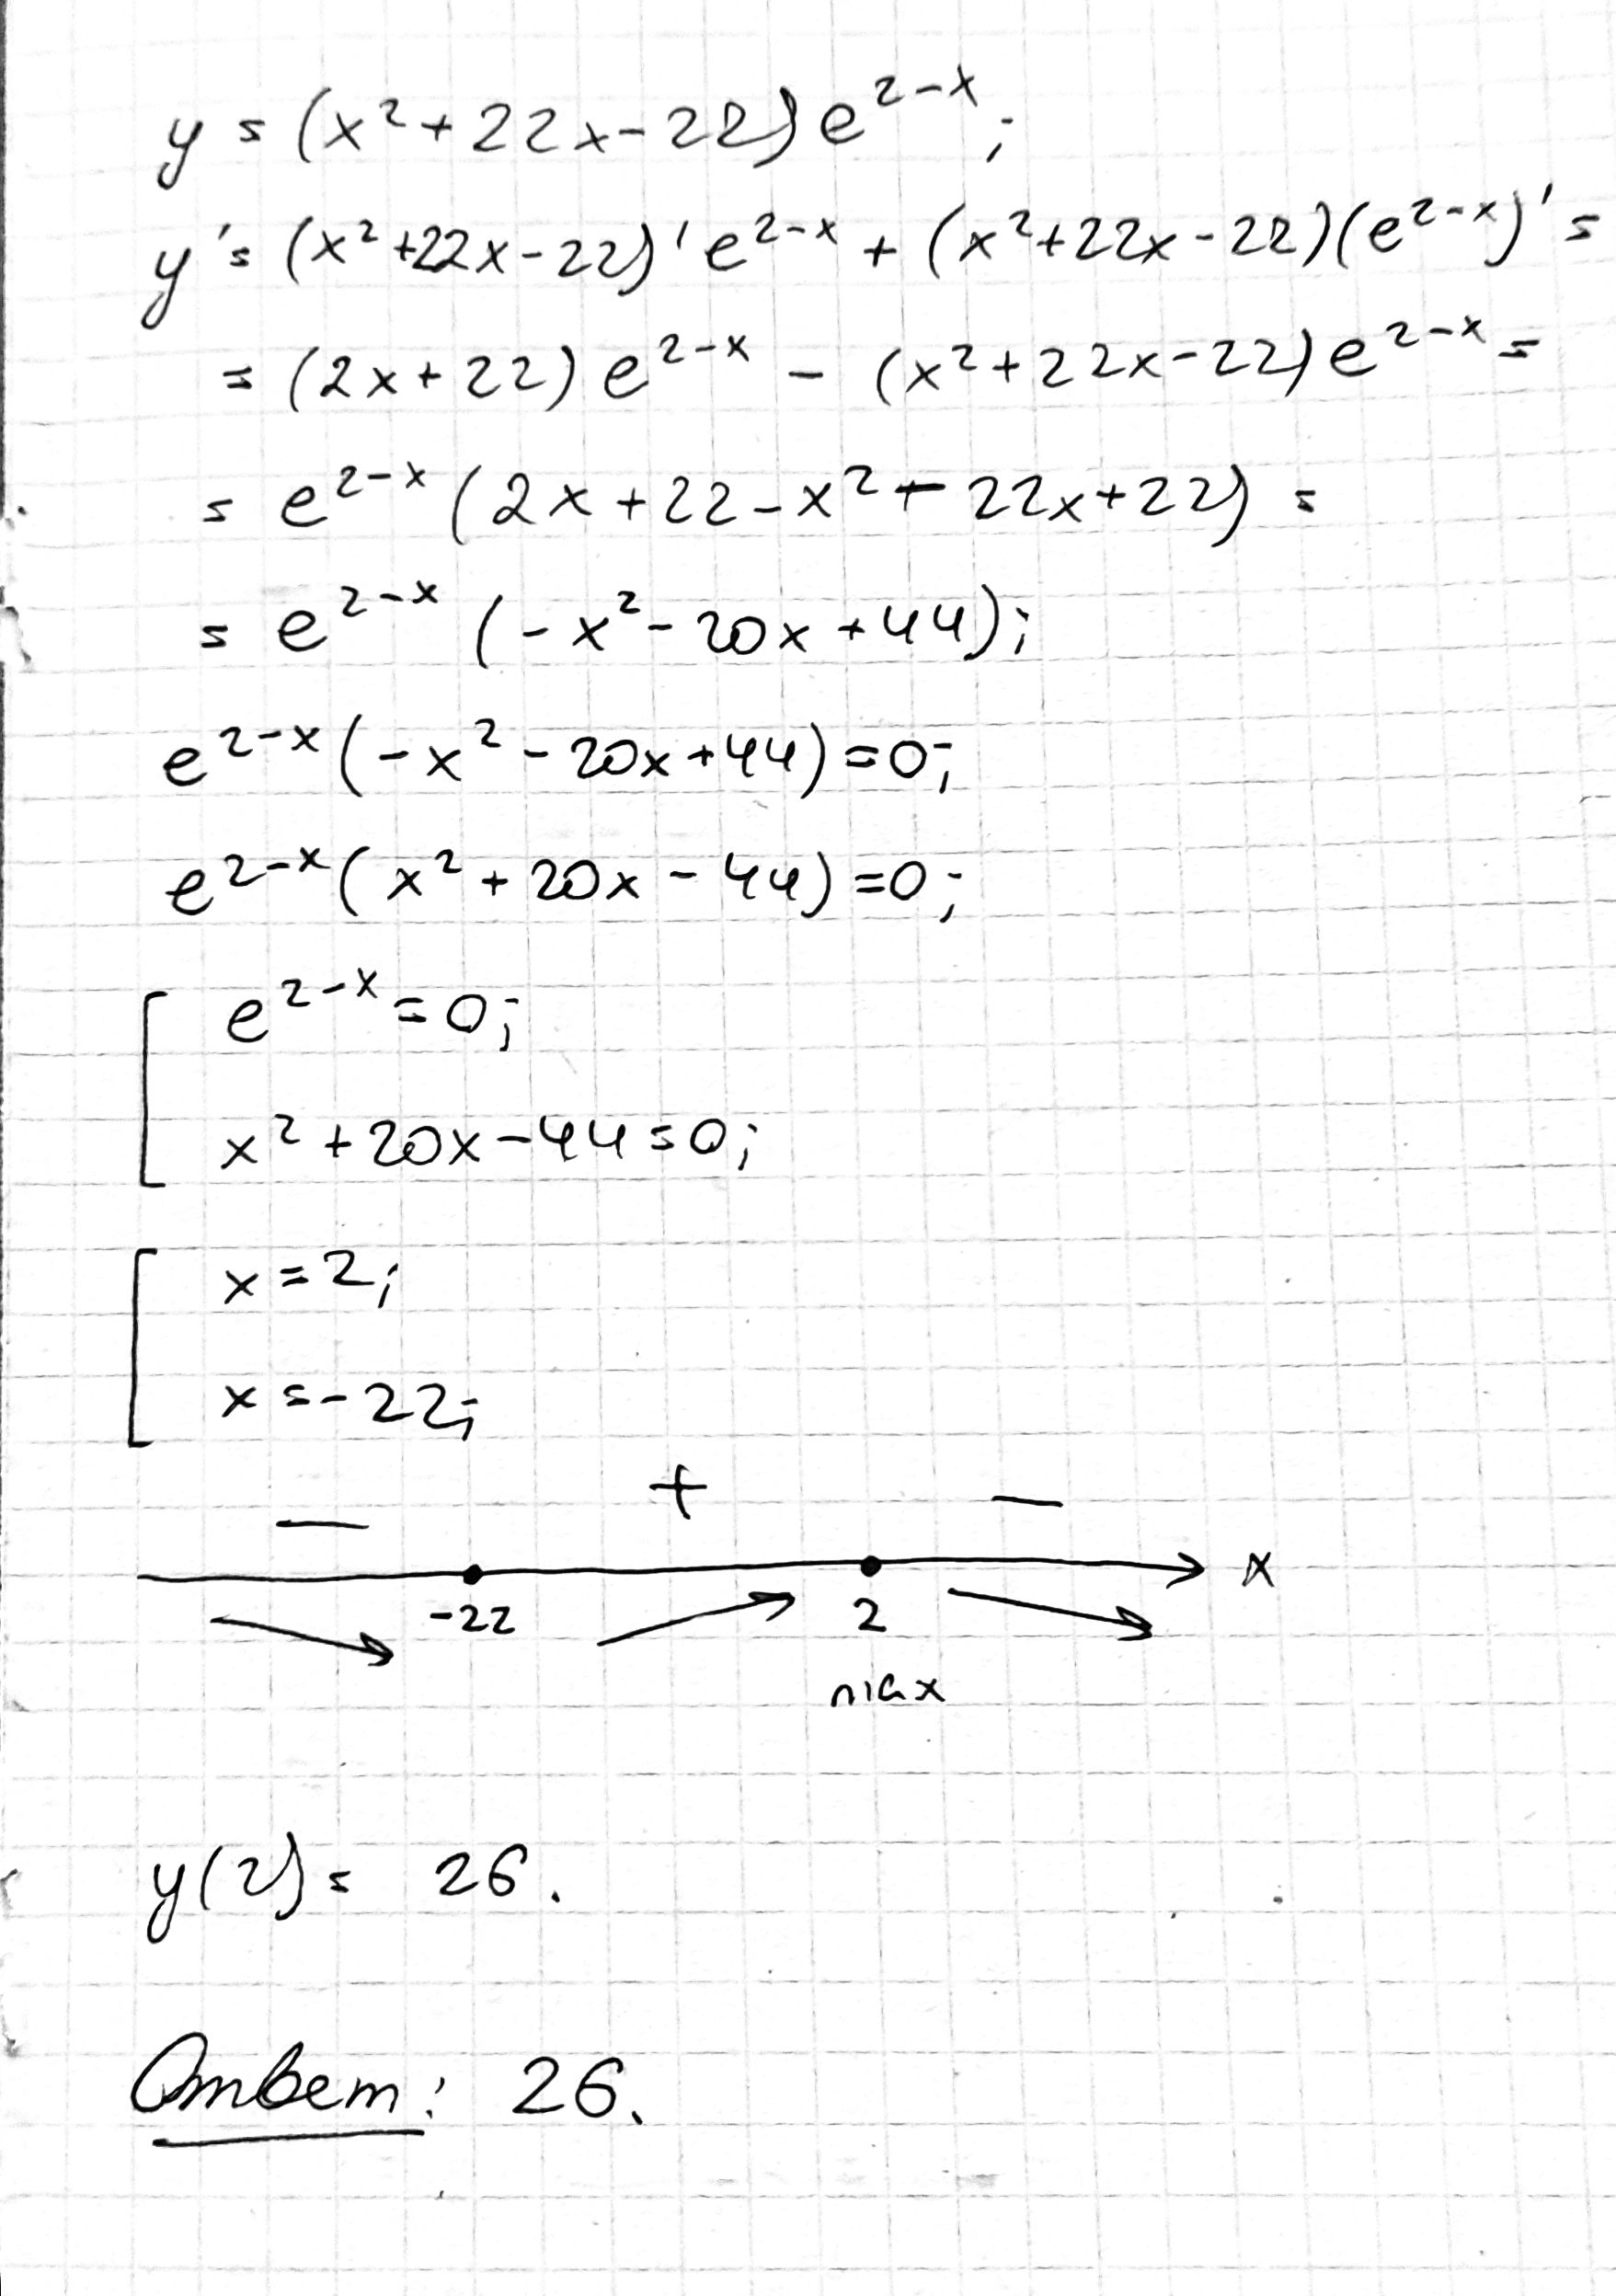 y = (x² + 22x - 22) e^{2-x};
y' = (x² + 22x - 22)' e^{2-x} + (x² + 22x - 22)(e^{2-x})' =
= (2x + 22) e^{2-x} - (x² + 22x - 22) e^{2-x} =
= e^{2-x} (2x + 22 - x² - 22x + 22) =
= e^{2-x} (-x² - 20x + 44);
e^{2-x} (-x² - 20x + 44) = 0;
e^{2-x} (x² + 20x - 44) = 0;
[ e^{2-x} = 0;
x² + 20x - 44 = 0;
[ x = 2;
x = -22;
− + −
-22 2 x
max
y(2) = 26.
Ответ: 26.